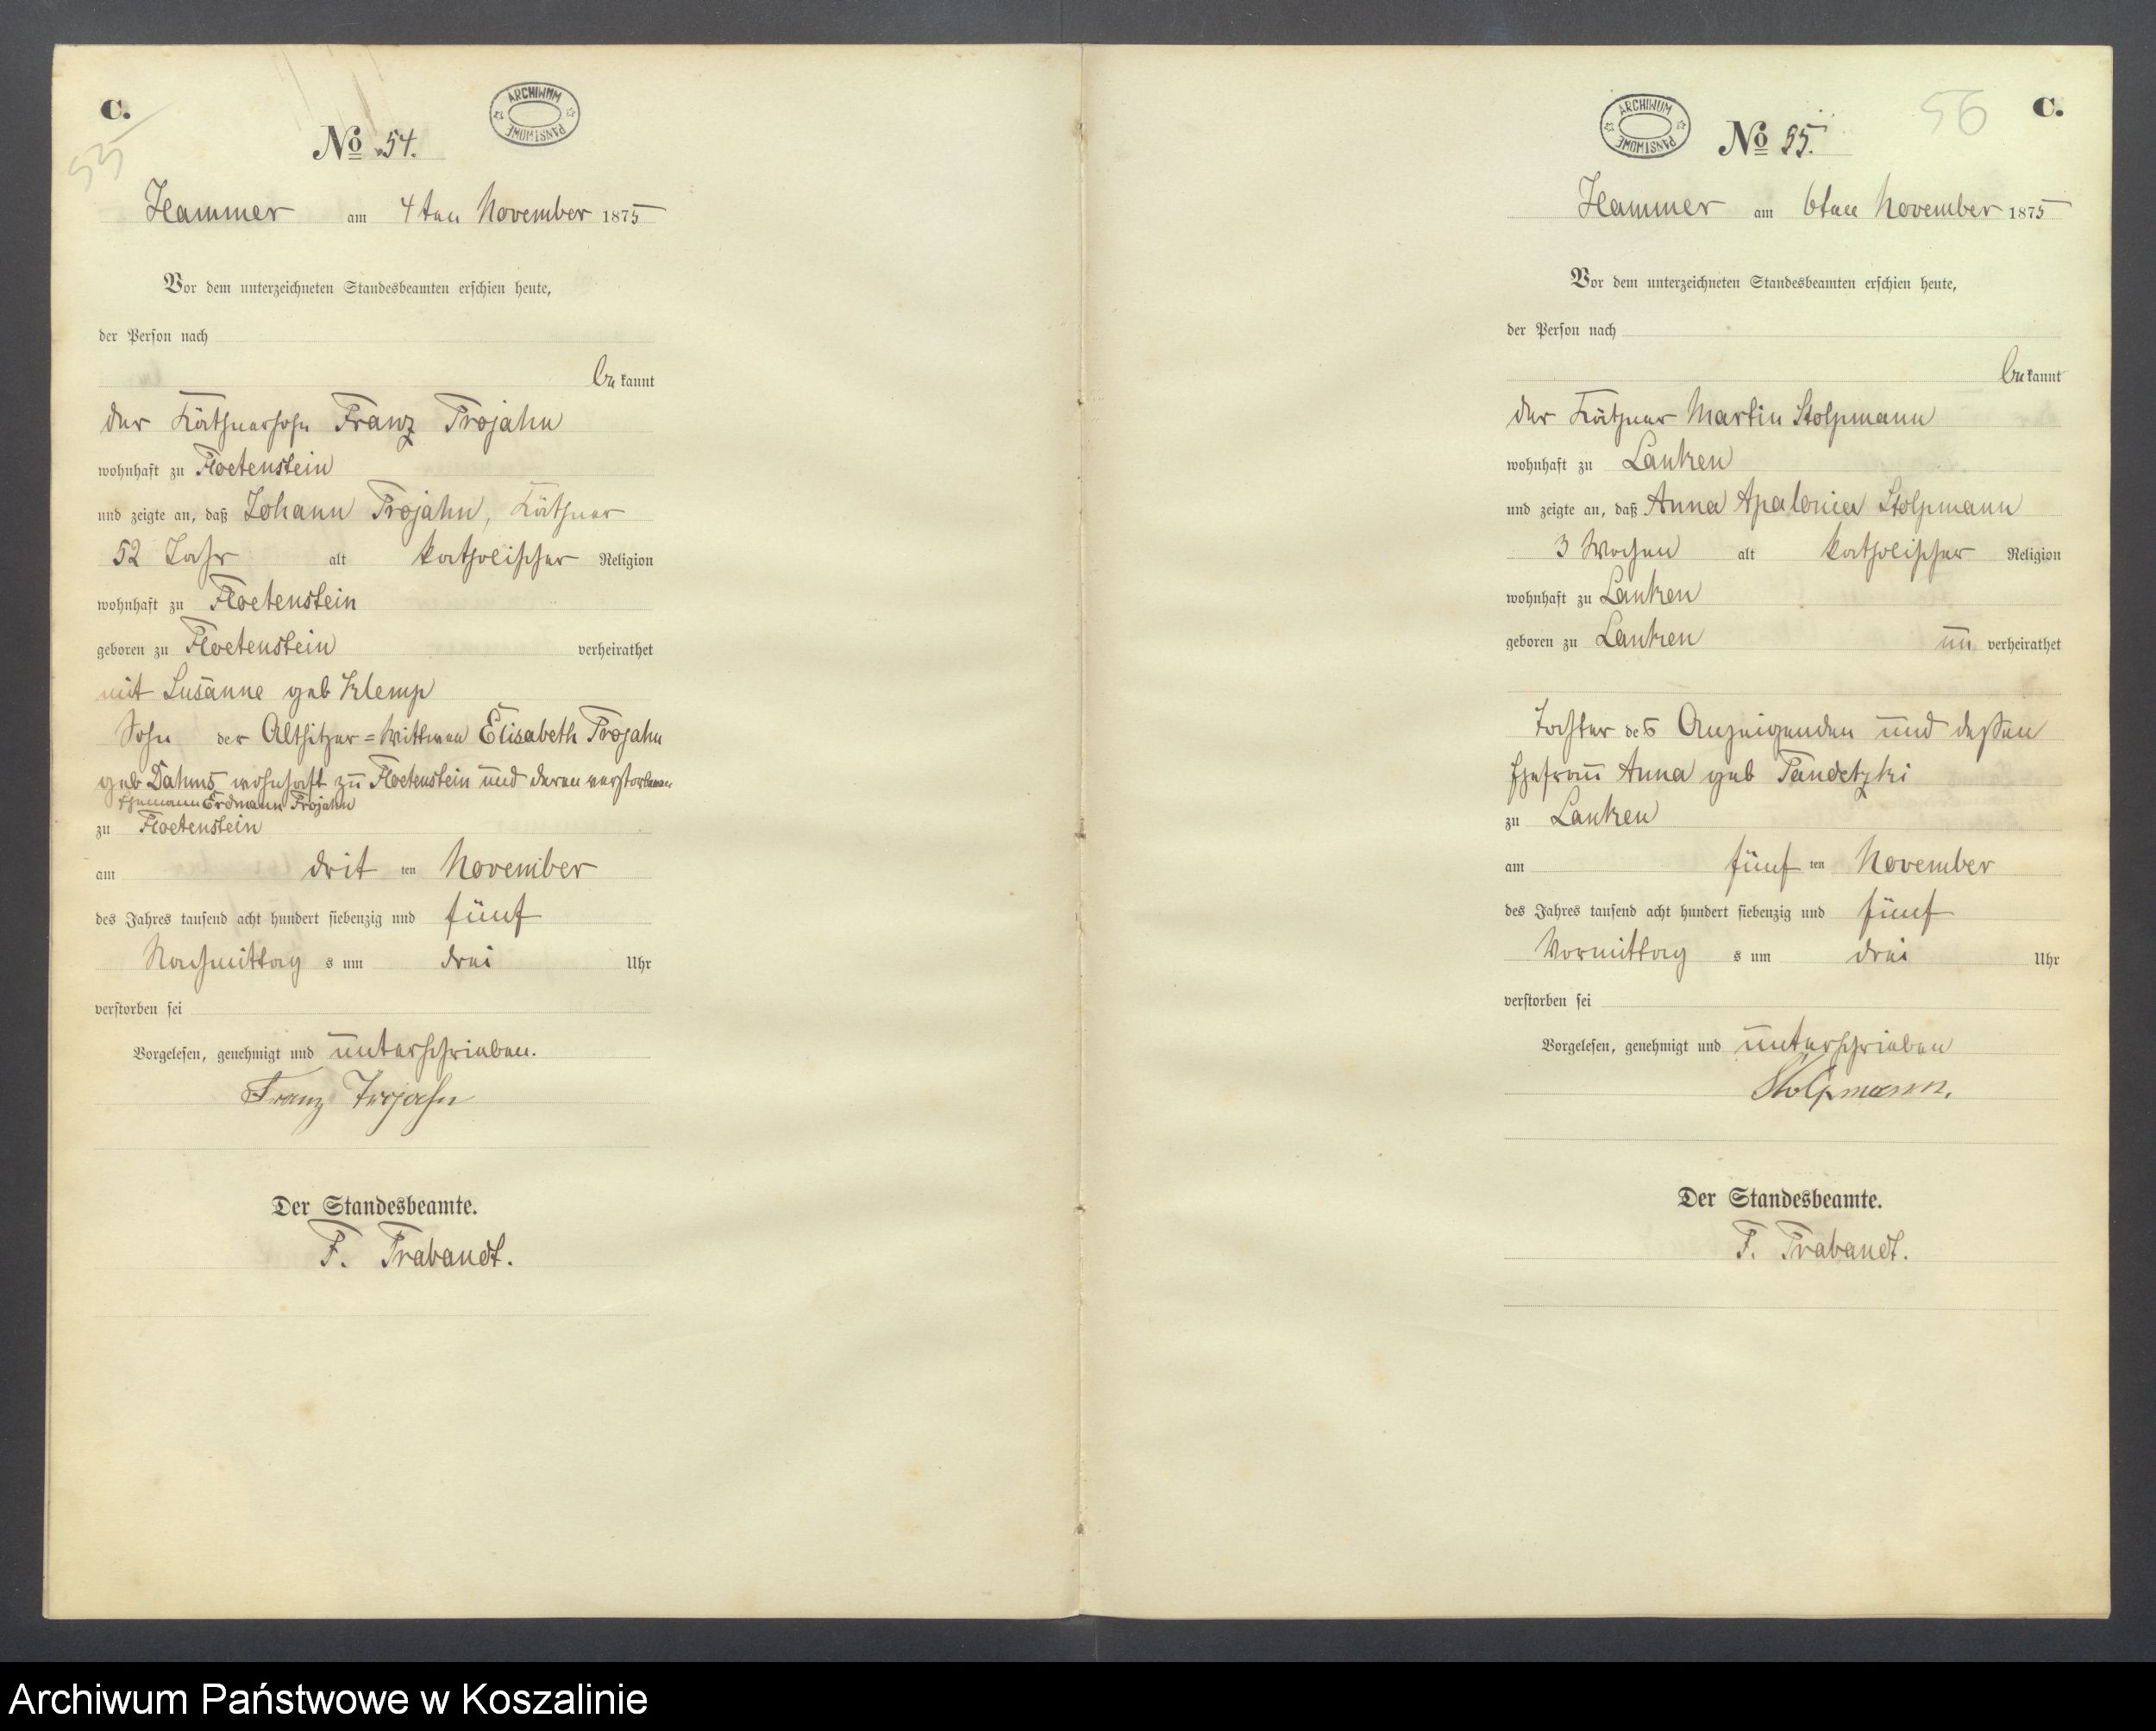 C.
55
ARCHIWUM PAŃSTWOWE
No 54.
Hammer am 4ten November 1875
Vor dem unterzeichneten Standesbeamten erschien heute,
der Person nach
be kannt
der Käthnersohn Franz Trojahn
wohnhaft zu Floetenstein
und zeigte an, daß Johann Trojahn, Käthner
52 Jahr alt katholischer Religion
wohnhaft zu Floetenstein
geboren zu Floetenstein verheirathet
mit Susanne geb Klemp
Sohn der Altsitzer=Wittwe Elisabeth Trojahn
geb Dahms wohnhaft zu Floetenstein und deren verstorbenen
Ehemann Erdmann Trojahn
zu Floetenstein
am drit ten November
des Jahres tausend acht hundert siebenzig und fünf
Nachmittag s um drei Uhr
verstorben sei
Vorgelesen, genehmigt und unterschrieben.
Franz Trojahn
Der Standesbeamte.
F. Trabandt.
C.
56
ARCHIWUM PAŃSTWOWE
No 55.
Hammer am 6ten November 1875
Vor dem unterzeichneten Standesbeamten erschien heute,
der Person nach
be kannt
der Käthner Martin Stolpmann
wohnhaft zu Lanken
und zeigte an, daß Anna Apalonia Stolpmann
3 Wochen alt katholischer Religion
wohnhaft zu Lanken
geboren zu Lanken un verheirathet
Tochter des Anzeigenden und dessen
Ehefrau Anna geb Pandetzki
zu Lanken
am fünf ten November
des Jahres tausend acht hundert siebenzig und fünf
Vormittag s um drei Uhr
verstorben sei
Vorgelesen, genehmigt und unterschrieben
Stolpmann.
Der Standesbeamte.
F. Trabandt.
Archiwum Państwowe w Koszalinie